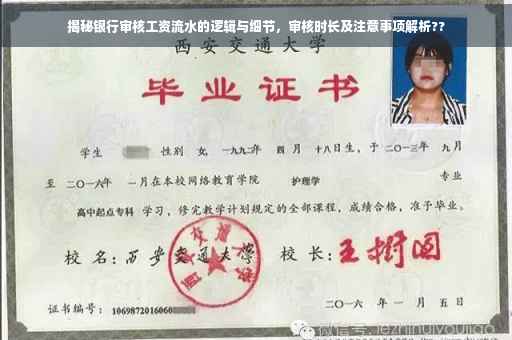 揭秘银行审核工资流水的逻辑与细节，审核时长及注意事项解析??
西安交通大学
毕业证书
学生 性别 女, 一九九二年 四月 十八日生, 于 二〇一三年 九月
至 二〇一六年 一月在本校网络教育学院 护理学 专业
高中起点专科 学习, 修完教学计划规定的全部课程, 成绩合格, 准予毕业。
校名: 西安交通大学 校长: 王树国
西安交通大学
证书编号: 1069872016060
二〇一六年 一月 五日
微信号: jezhihuiyoujiao